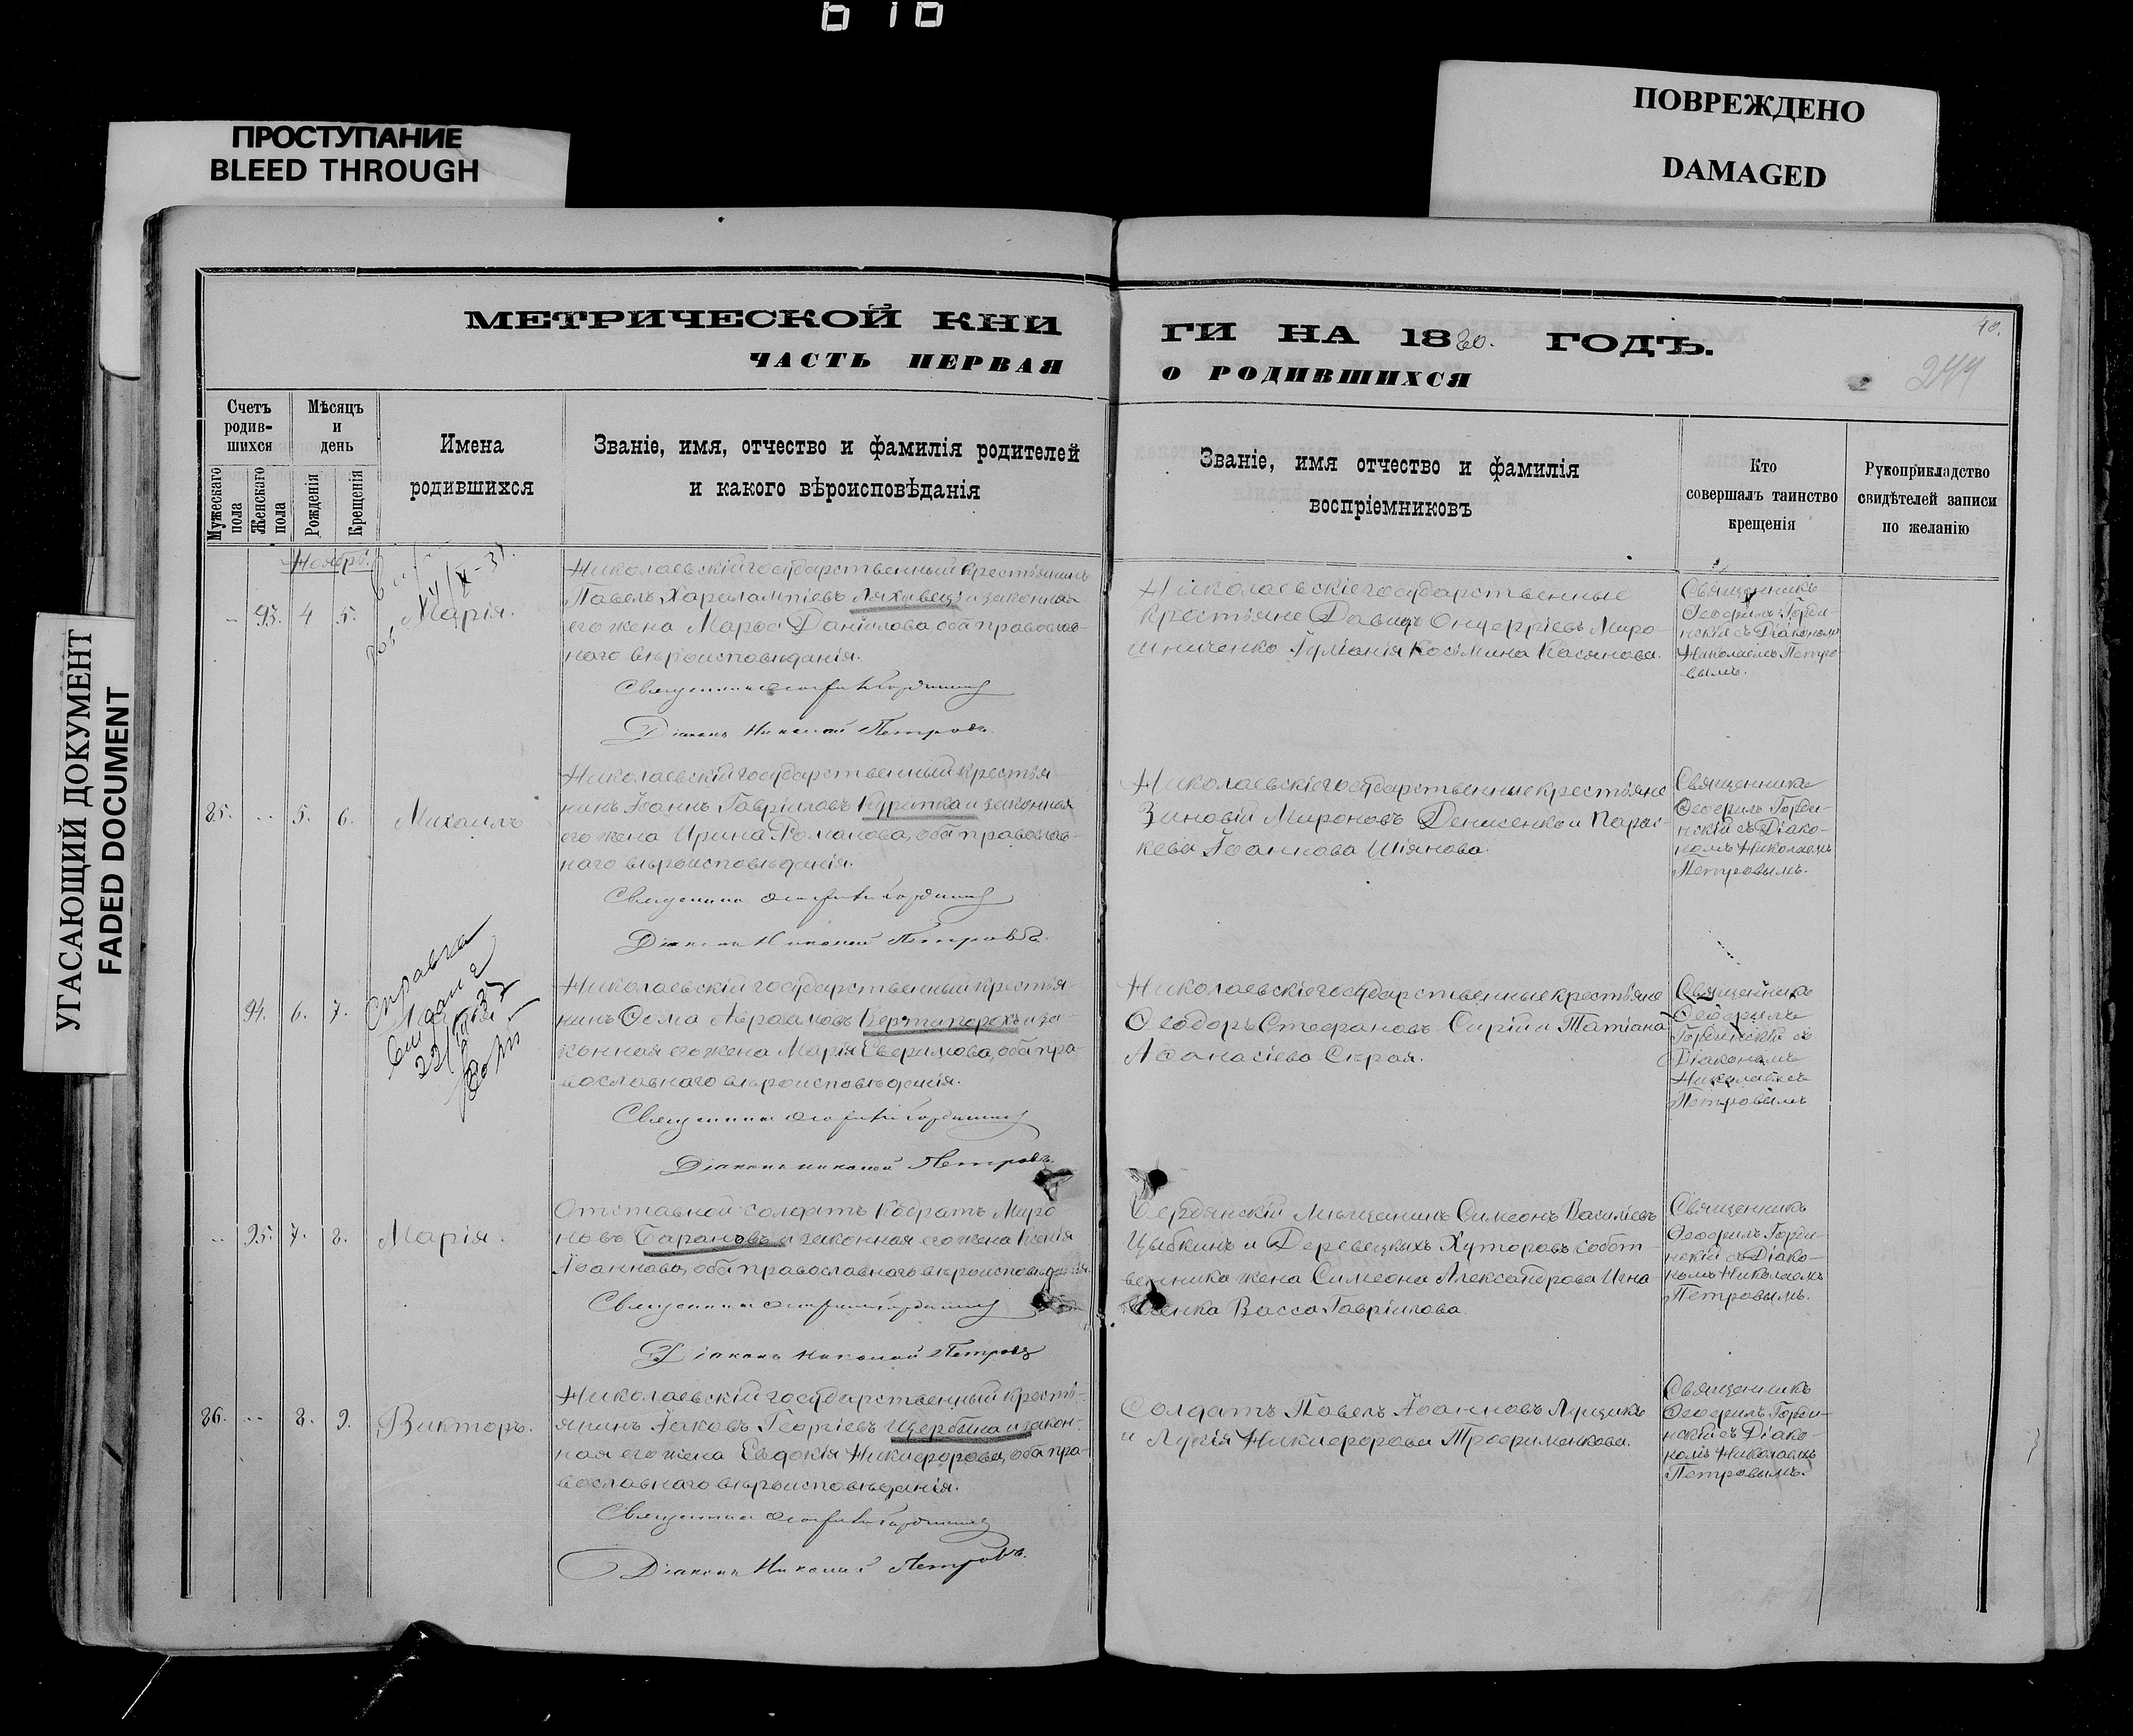 ПРОСТУПАНИЕ
BLEED THROUGH
ПОВРЕЖДЕНО
DAMAGED
УГАСАЮЩИЙ ДОКУМЕНТ
FADED DOCUMENT
МЕТРИЧЕСКОЙ КНИ
ГИ НА 1880. ГОДЪ.
ЧАСТЬ ПЕРВАЯ
О РОДИВШИХСЯ
40.
244
Счетъ родив-шихся
Мужескаго пола
Женскаго пола
Мѣсяцъ и день
Рожденія
Крещенія
Имена родившихся
Званіе, имя, отчество и фамилія родителей
и какого вѣроисповѣданія
Званіе, имя отчество и фамилія
воспріемниковъ
Кто
совершалъ таинство
крещенія
Рукоприкладство
свидѣтелей записи
по желанію
Ноябрь.
93. 4 5. Марія.
Николаевскій государственный крестьянинъ
Павелъ Харалампіевъ Ляховецъ и законная
его жена Марѳа Даніилова, оба православ-
наго вѣроисповѣданія.
Діаконъ Николай Петровъ.
Николаевскіе государственные
крестьяне Давидъ Миро-
шниченко Іуліанія Косьмина Касянова.
Священникъ
Ѳеофилъ Горди-
нскій съ Діакономъ
Николаемъ Петро-
вымъ.
85. 5. 6. Михаилъ
Николаевскій государственный крестья
нинъ Іоаннъ Гавріиловъ и законная
его жена Ирина Романова, оба православ-
наго вѣроисповѣданія.
Діаконъ Николай Петровъ.
Николаевскіе государственные крестьяне
Зиновій Мироновъ Денисенко и Парас-
кева Іоаннова Шіянова.
Священникъ
Ѳеофилъ Горди-
нскій съ Діако-
номъ Николаемъ
Петровымъ.
94. 6. 7.
Справка
Николаевскій государственный крестья-
нинъ Ѳома Авраамовъ Вертипорохъ и за-
конная его жена Марія Евфимова, оба пра-
вославнаго вѣроисповѣданія.
Діаконъ Николай Петровъ.
Николаевскіе государственные крестьяне
Ѳеодоръ Стефановъ Сирій и Татіана
Аѳанасіева Сѣрая.
Священникъ
Ѳеофилъ
Гординскій съ
Діакономъ
Николаемъ
Петровымъ
95. 7. 8. Марія.
Отставной солдатъ Кодратъ Миро
новъ Барановъ и законная его жена Ксенія
Іоаннова, оба православнаго вѣроисповѣданія.
Діаконъ Николай Петровъ
Бердянскій Мѣщанинъ Симеонъ Василіевъ
Цыбкинъ и Деревецкихъ Хуторовъ собст-
венника жена Симеона Александрова Игна
тенка Васса Гавріилова.
Священникъ
Ѳеофилъ Горди-
нскій съ Діако-
номъ Николаемъ
Петровымъ.
86. 8. 9. Викторъ.
Николаевскій государственный кресть-
янинъ Іаковъ Георгіевъ Щербина и закон-
ная его жена Евдокія Никифорова, оба пра-
вославнаго вѣроисповѣданія.
Діаконъ Николай Петровъ.
Солдатъ Павелъ Іоанновъ Луцикъ
и Лукія Никифорова Трофименкова.
Священникъ
Ѳеофилъ Горди-
нскій съ Діако-
номъ Николаемъ
Петровымъ.